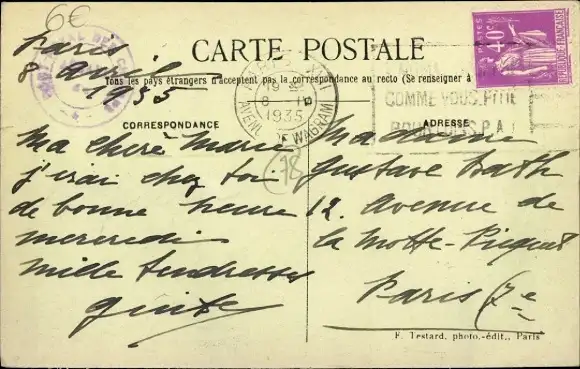 6€
CARTE POSTALE
Tous les pays étrangers n'acceptent pas la correspondance au recto (Se renseigner à
CORRESPONDANCE
ADRESSE
Paris
8 avril
1935
Ma chère Marie
j'irai chez toi
de bonne heure
mercredi
mille tendresses
18
19
8
1935
AVENUE DE WAGRAM
COMME VOUS. PITIÉ
POUR
S.P.A.
POSTES
40c
Madame
Gustave
12. Avenue de
la Motte-Picquet
Paris (7e
F. Testard, photo.-édit., Paris